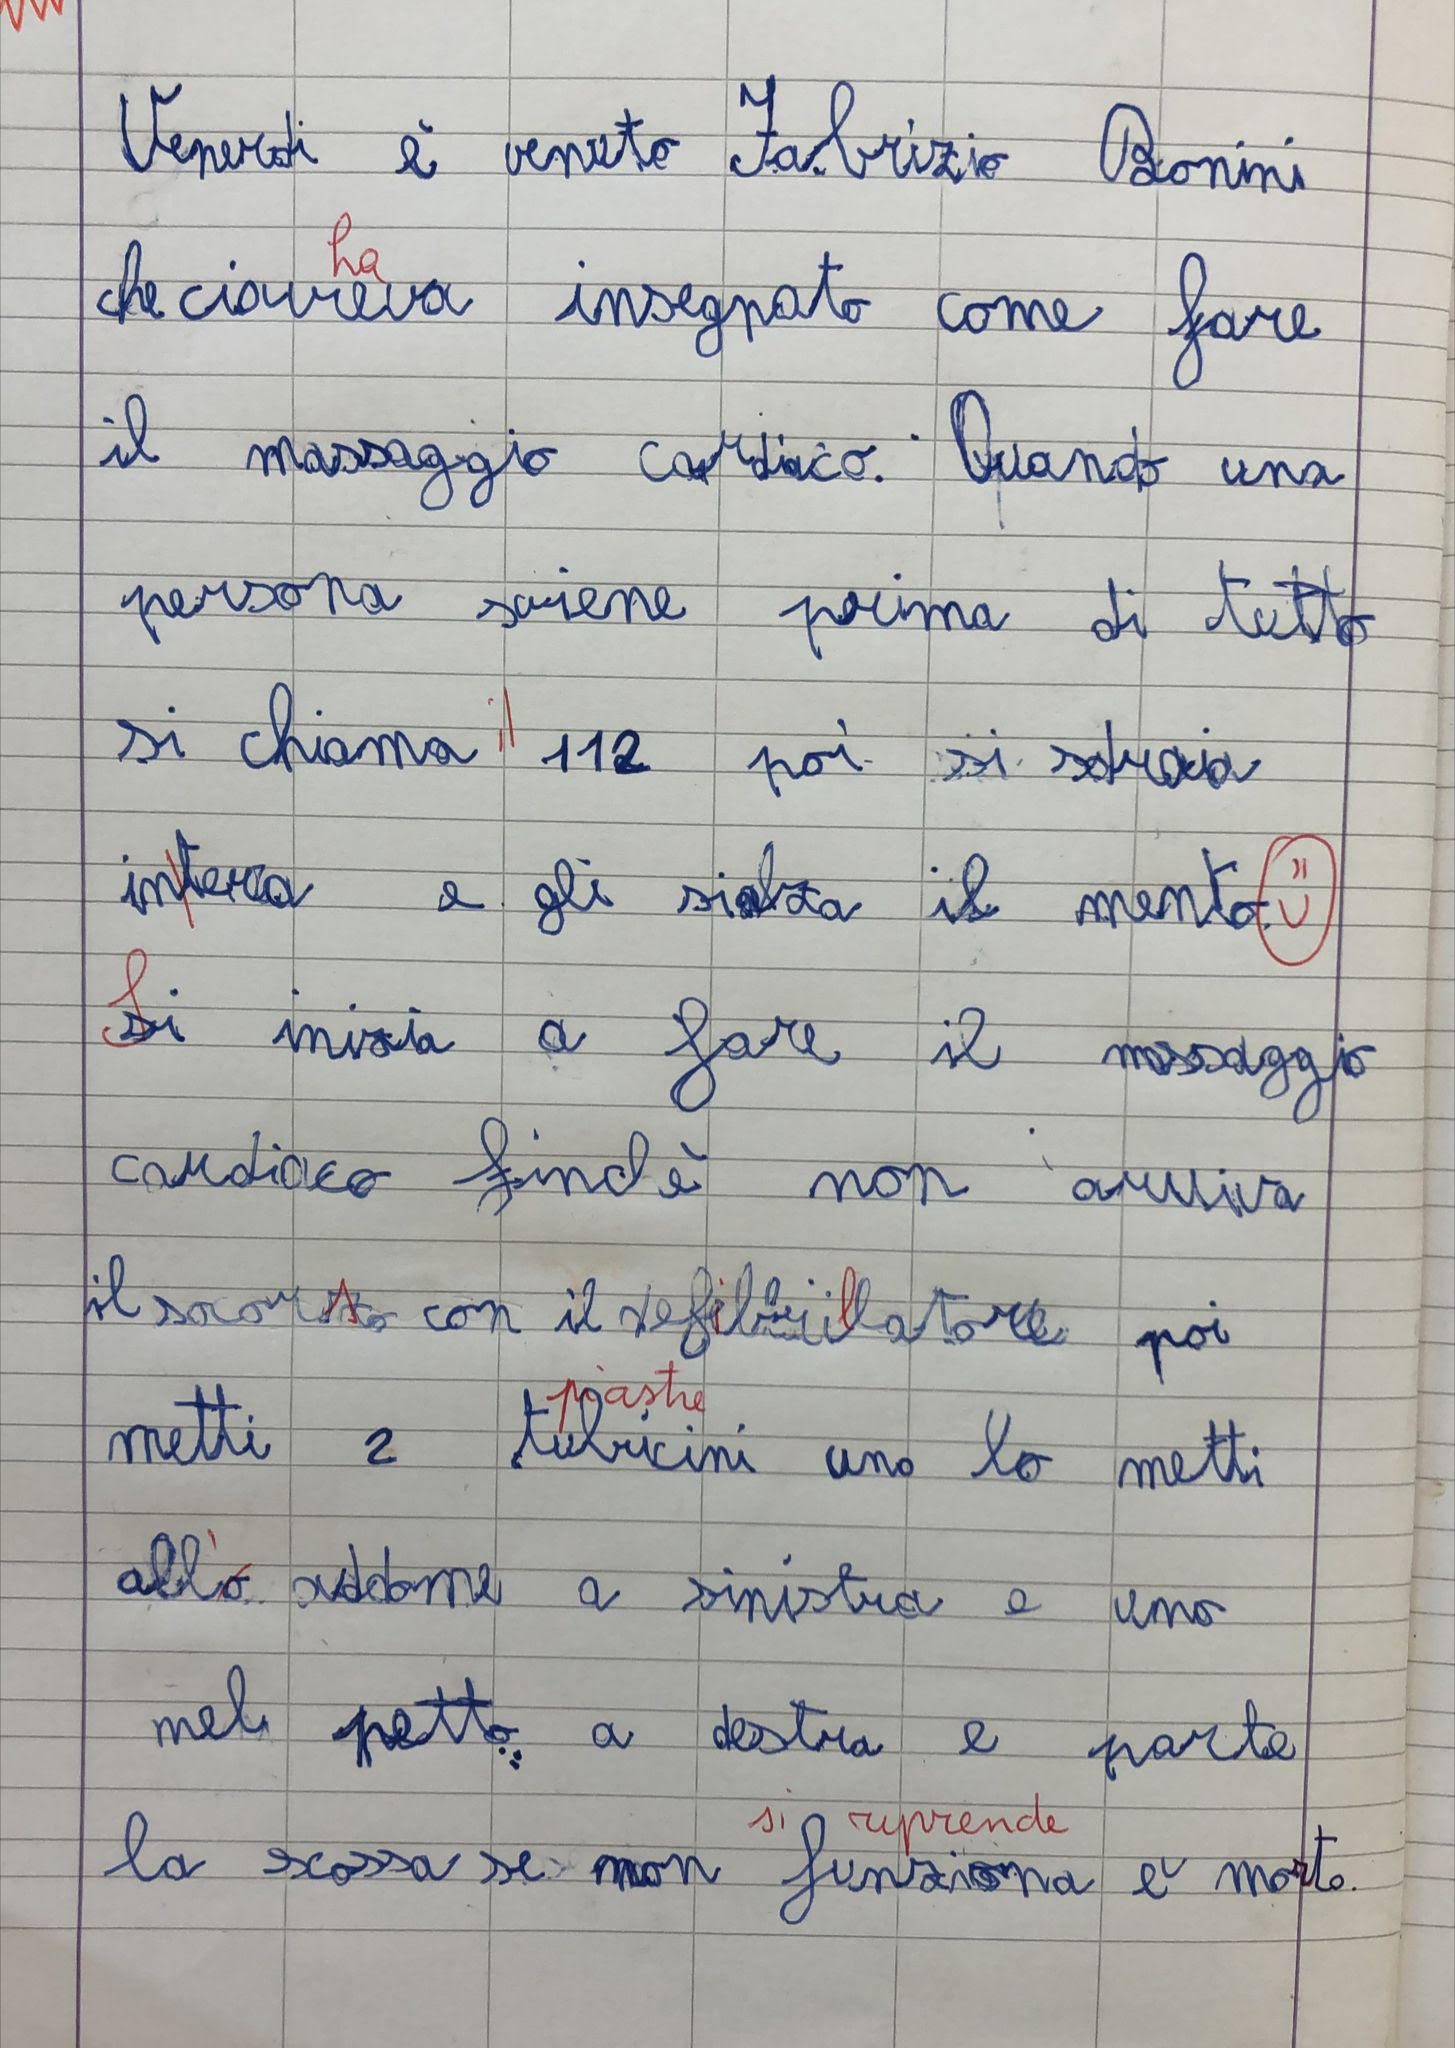 Venerdi è venuto Fabrizio Bonini
ha
che ciaveva insegnato come fare
il massaggio cardiaco. Quando una
persona sviene prima di tutto
si chiama il 112 poi si sdraia
interra e gli sialza il mento.
Si inizia a fare il massaggio
cardiaco finchè non arriva
il socorso con il defibrillatore poi
piastre
metti 2 tubicini uno lo metti
all'o addome a sinistra e uno
nel petto a destra e parte
si riprende
la scossa se non funziona e' morto.